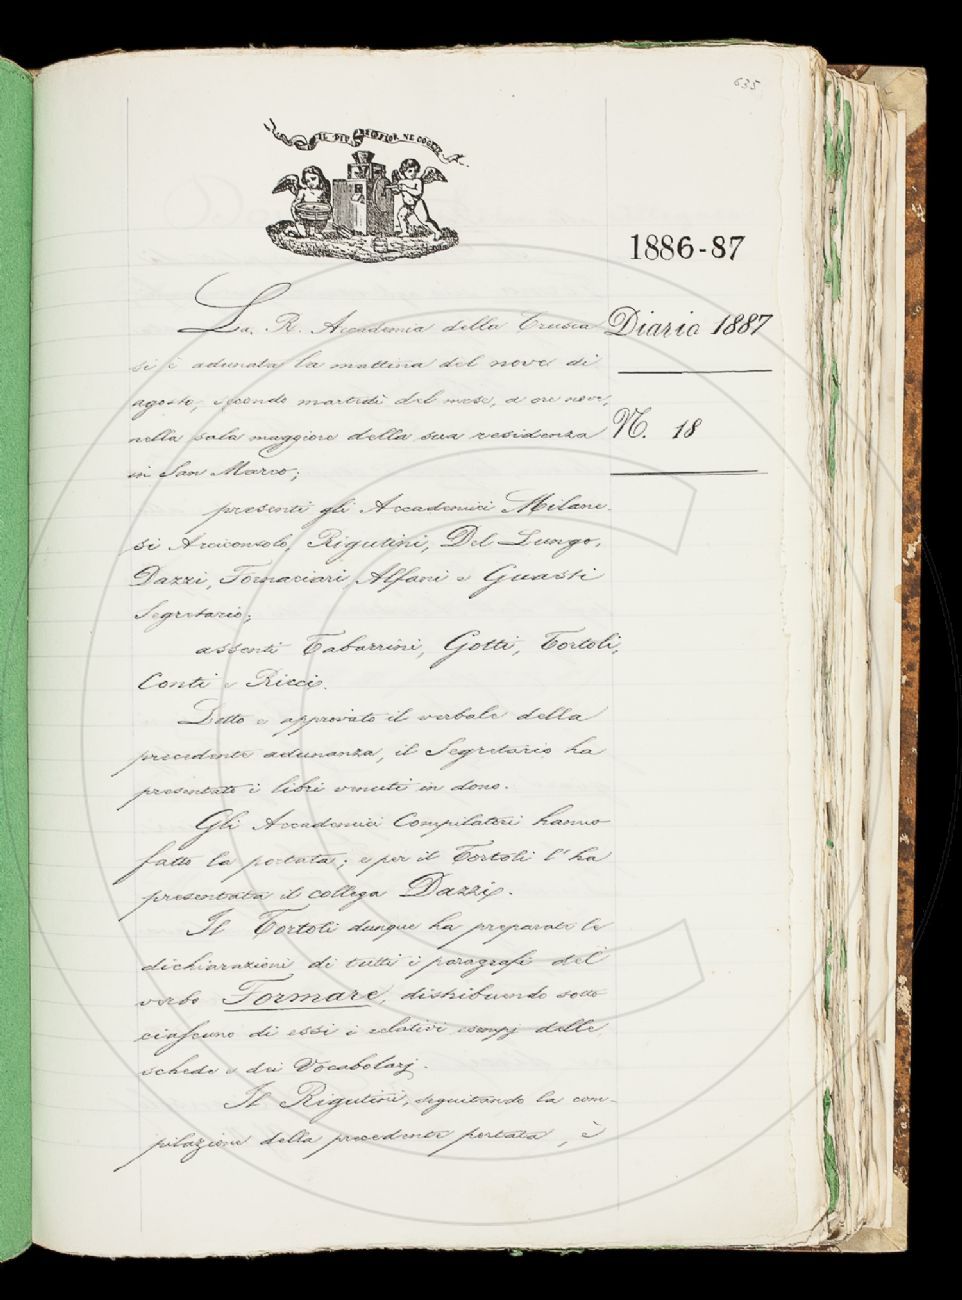 635
IL PIÙ BEL FIOR NE COGLIE
1886-87
Diario 1887
N. 18
La R. Accademia della Crusca
si è adunata la mattina del nove di
agosto, secondo martedì del mese, a ore nove,
nella sala maggiore della sua residenza
in San Marco;
presenti gli Accademici Milane
si Arciconsolo, Rigutini, Del Lungo,
Dazzi, Fornaciari, Alfani e Guasti
Segretario;
assenti Tabarrini, Gotti, Tortoli,
Conti e Ricci.
Letto e approvato il verbale della
precedente adunanza, il Segretario ha
presentato i libri venuti in dono.
Gli Accademici Compilatori hanno
fatto la portata; e per il Tortoli l'ha
presentata il collega Dazzi.
Il Tortoli dunque ha preparate le
dichiarazioni di tutti i paragrafi del
verbo Formare, distribuendo sotto
ciascuno di essi i relativi esempj delle
schede e dei Vocabolarj.
Il Rigutini, seguitando la com-
pilazione della precedente portata, è